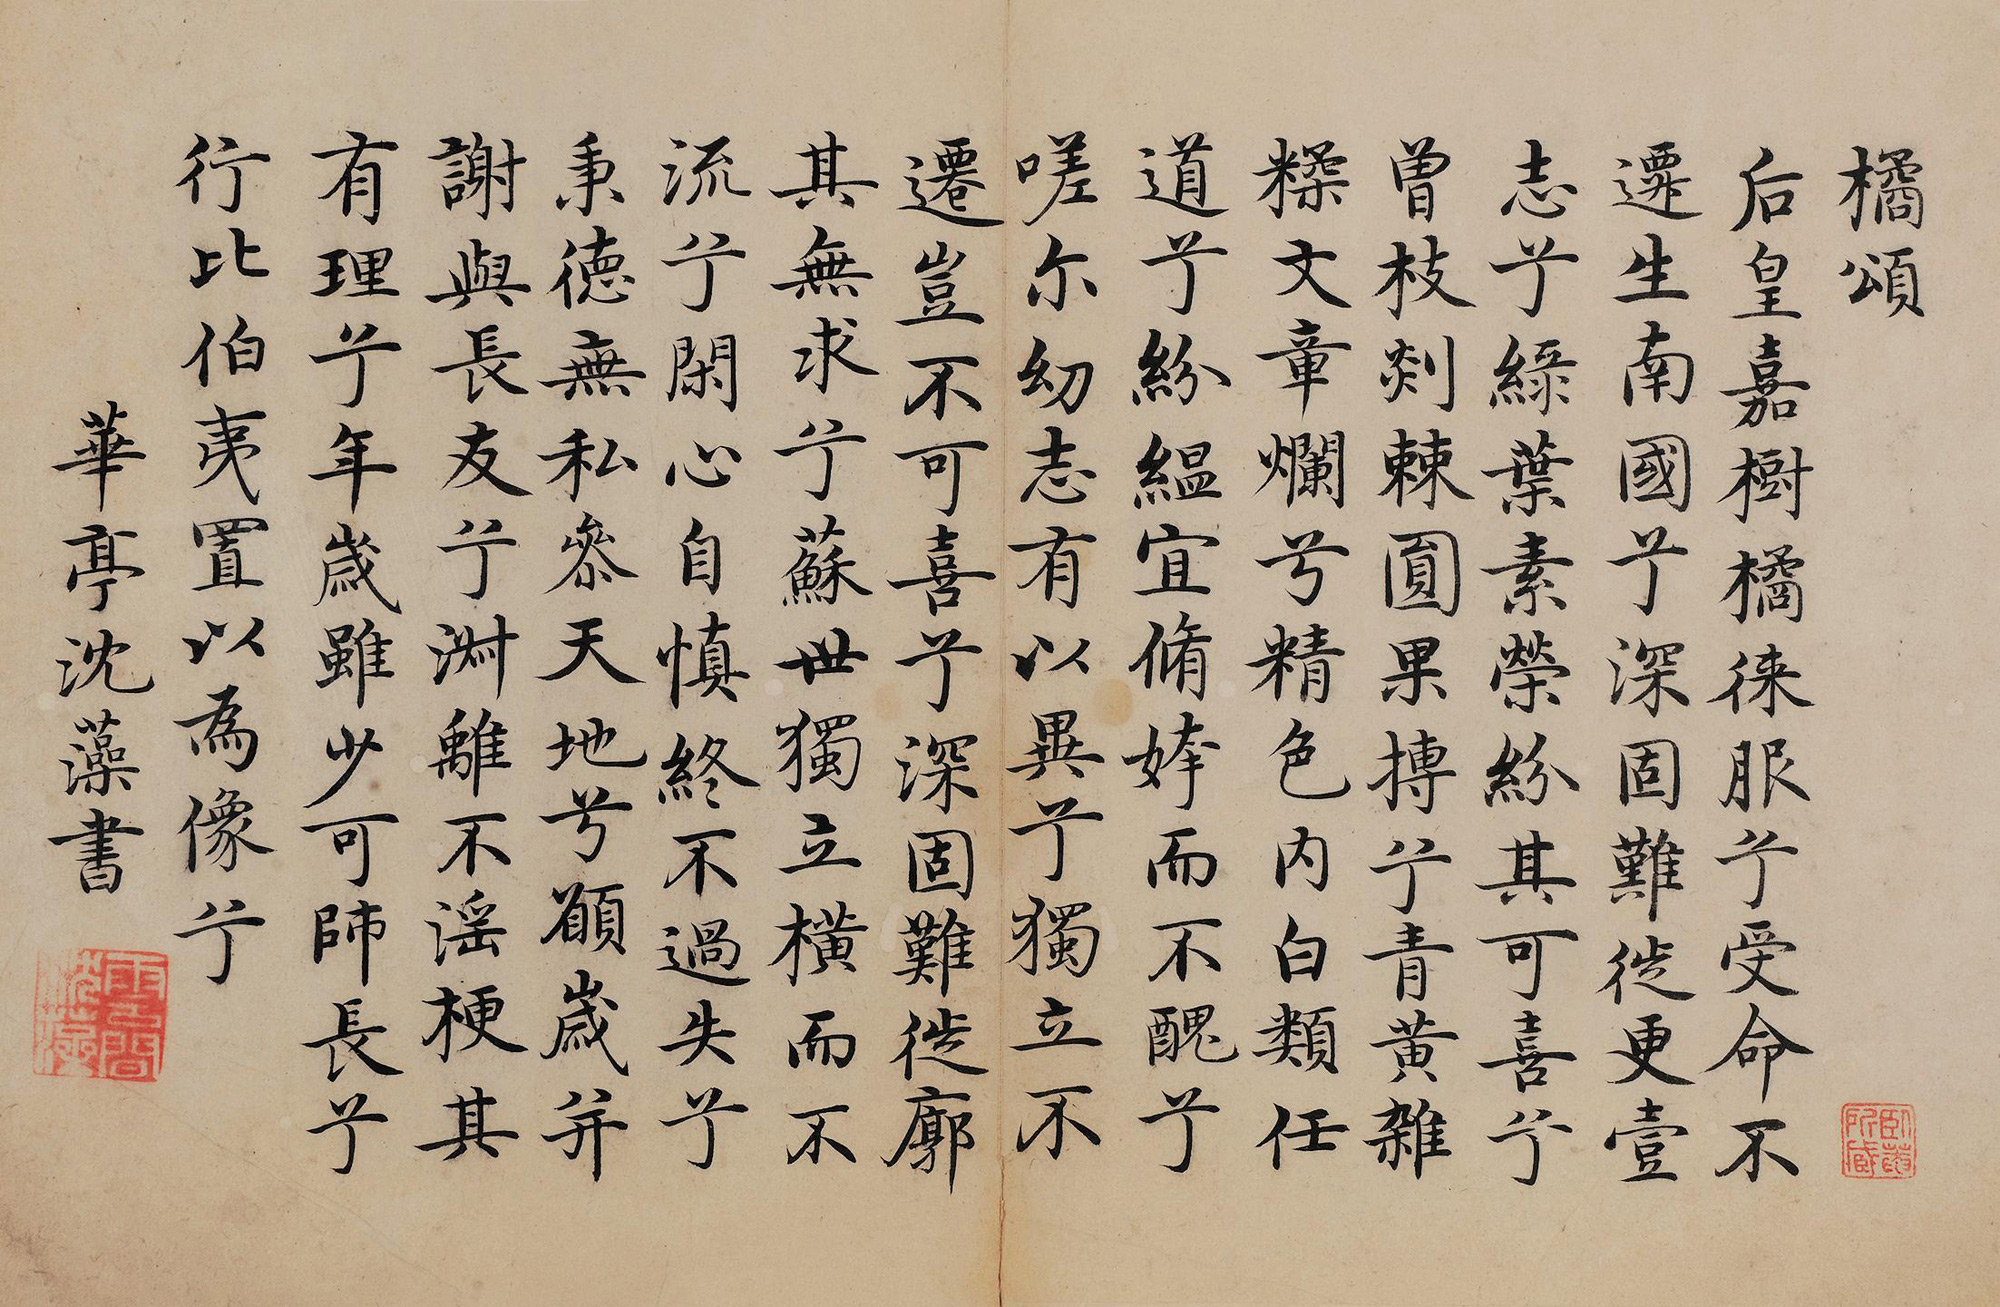 橘頌
后皇嘉樹橘徠服兮受命不
遷生南國兮深固難徙更壹
志兮綠葉素榮紛其可喜兮
曾枝剡棘圓果摶兮青黃雜
糅文章爛兮精色内白類任
道兮紛縕宜脩姱而不醜兮
嗟尔幼志有以異兮獨立不
遷豈不可喜兮深固難徙廓
其無求兮蘇世獨立橫而不
流兮閑心自慎終不過失兮
秉德無私參天地兮願歲并
謝與長友兮淋離不淫梗其
有理兮年歲雖少可師長兮
行比伯夷置以為像兮
華亭沈藻書
雲間沈藻